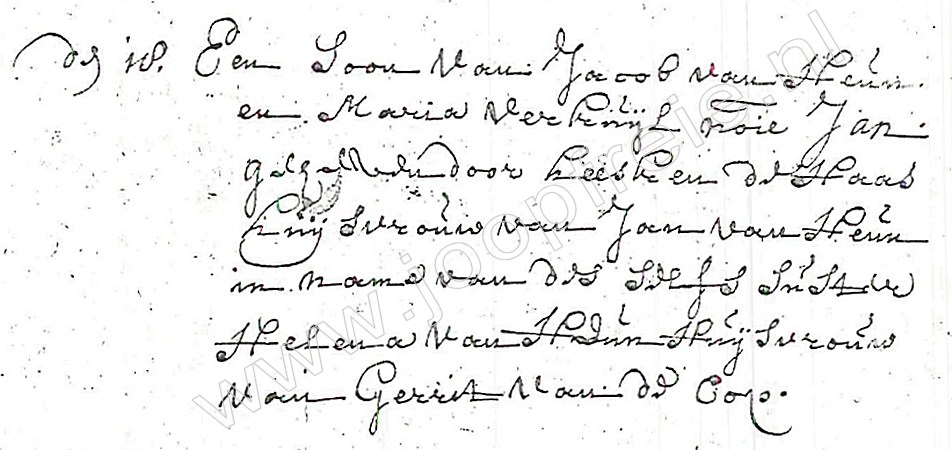 dij 18. Een Soon van Jacob van Heun
en Maria Verkuijl noie Jan
geheven door Keesken de Haas
huijsvrouw van Jan van Heun
in name van des selfs Suster
Helena van Heun Huijsvrouw
van Gerrit van de Cop.
www.joopreie.nl